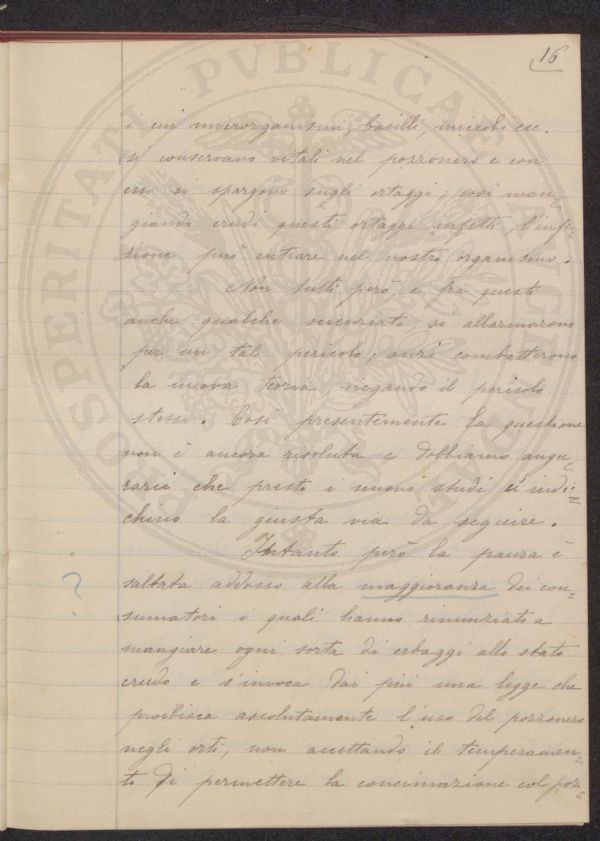 16
i cui microrganismi, bacilli, microbi ecc.
si conservano vitali nel pozzonero e con
esso si spargono sugli ortaggi, così man=
giando crudi questi ortaggi infetti, l'infe=
zione può entrare nel nostro organismo.
Non tutti però, e fra questi
anche qualche scienziato, si allarmarono
per un tal pericolo; anzi combatterono
la nuova teoria negando il pericolo
stesso. Così presentemente la questione
non è ancora risoluta e dobbiamo augu=
rarci che presto i nuovi studi ci indi=
chino la giusta via da seguire.
Intanto però la paura è
saltata addosso alla maggioranza dei con=
?
sumatori i quali hanno rinunziato a
mangiare ogni sorta di erbaggi allo stato
crudo e s'invoca dai più una legge che
proibisca assolutamente l'uso del pozzonero
negli orti, non accettando il temperamen=
to di permettere la concimazione col poz=
PROSPERITATI PVBLICAE